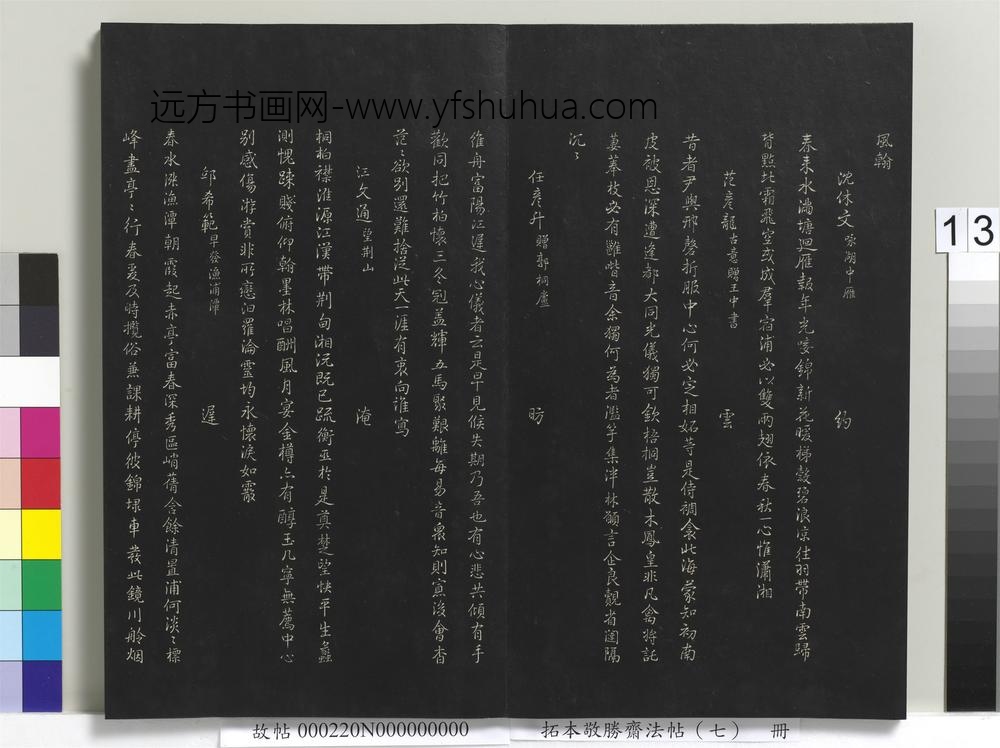 远方书画网-www.yfshuhua.com
風翰
沈休文 詠湖中雁 約
春来水滿塘迴雁報年光唼錦新花暖梯縠碧浪涼往羽帶南雲歸
背點北霜飛空或成羣宿浦必以雙兩翅依春秋一心惟瀟湘
范彦龍 古意贈王中書 雲
昔者尹與邢磬折服中心何必定相妬芋是侍裯衾此海蒙知初南
皮被恩深遭逢都大同光儀獨可欽梧桐豈散木鳳皇非凡禽将託
萋菶枝必有嘅喈音余獨何為者濫竽集泮林願言企良覿省闥隔
沉〻
任彦升 贈郭桐廬 昉
維舟富陽江遲我心儀者云是早見候失期乃吾也有心悲共傾有手
歡同把竹柏懷三冬冠盖輝五馬聚艱離每易音衆知則寡後會杳
茫〻欲别還難捨從此天一涯有衷向誰寫
江文通 望荆山 淹
桐柏襟淮源江漢帶荆甸湘沅既已疏衡巫於是奠楚望快平生蠡
測愧踈賤俯仰翰墨林唱酬風月宴金樽亦有醇玉几寧無薦中心
别感傷游賞非所戀汩羅淪靈均永懷淚如霰
邱希範 早發漁浦潭 遲
春水漲漁潭朝霞起赤亭富春深秀區峭蒨含餘清置浦何淡〻標
峰盡亭〻行春爰及時攬俗兼課耕停彼錦埭車發此鏡川舲烟
故帖 000220N000000000
拓本敬勝齋法帖（七） 冊
13